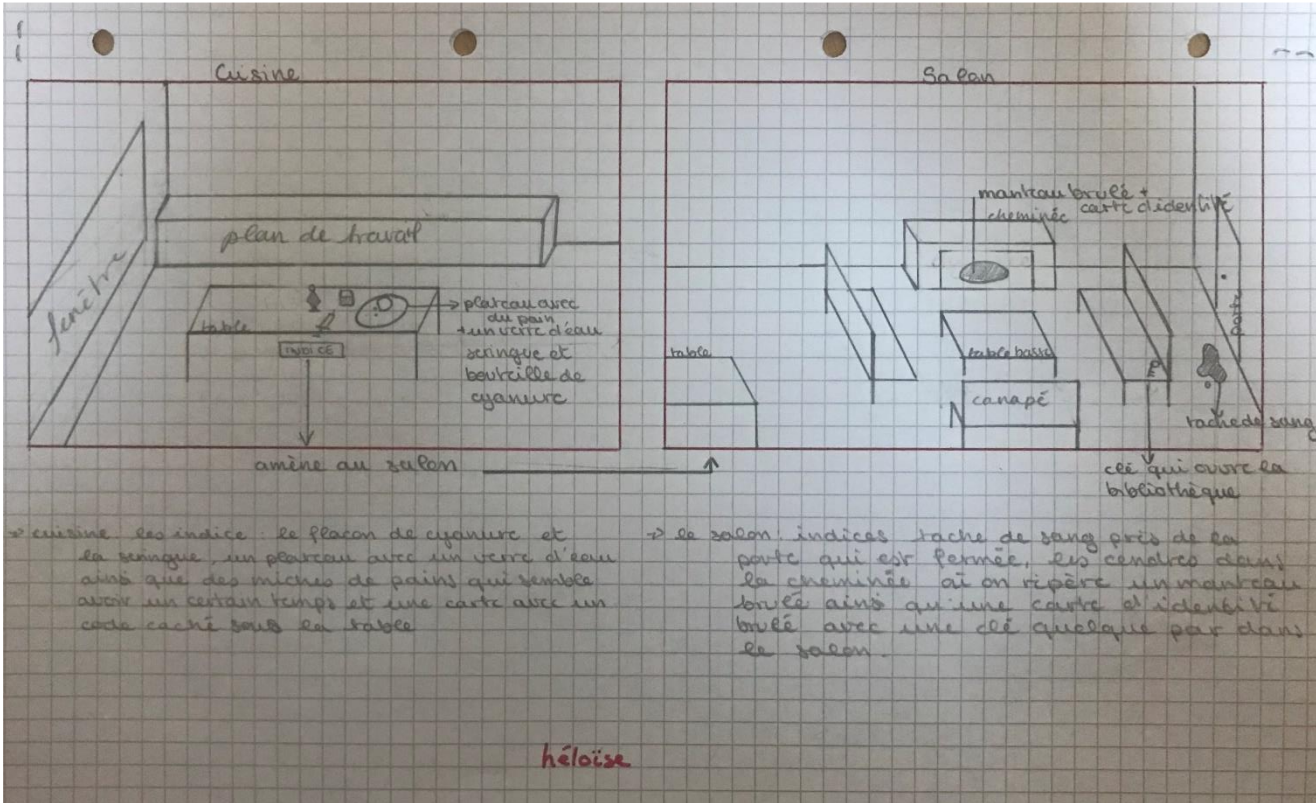 Cuisine
plan de travail
fenêtre
table
INDICE
plateau avec
du pain
+ un verre d'eau
seringue et
bouteille de
cyanure
amène au salon
Salon
manteau brulé +
carte d'identité
cheminée
table
table basse
canapé
porte
tache de sang
clé qui ouvre la
bibliothèque
→ cuisine les indice le flacon de cyanure et
la seringue, un plateau avec un verre d'eau
ainsi que des miches de pains qui semble
avoir un certain temps et une carte avec un
code caché sous la table
→ le salon, indices tache de sang près de la
porte qui est fermée, les cendres dans
la cheminée où on repère un manteau
brulé ainsi qu'une carte d'identité
brulé avec une clé quelque par dans
le salon.
héloïse